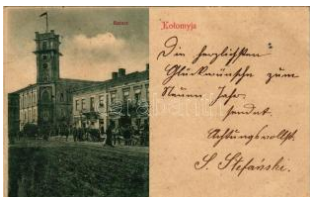 Ratusz
Kołomyja
Die herzlichsten
Glückwünsche zum
Neuen Jahr
sendet
Achtungsvollst
S. Stefański.